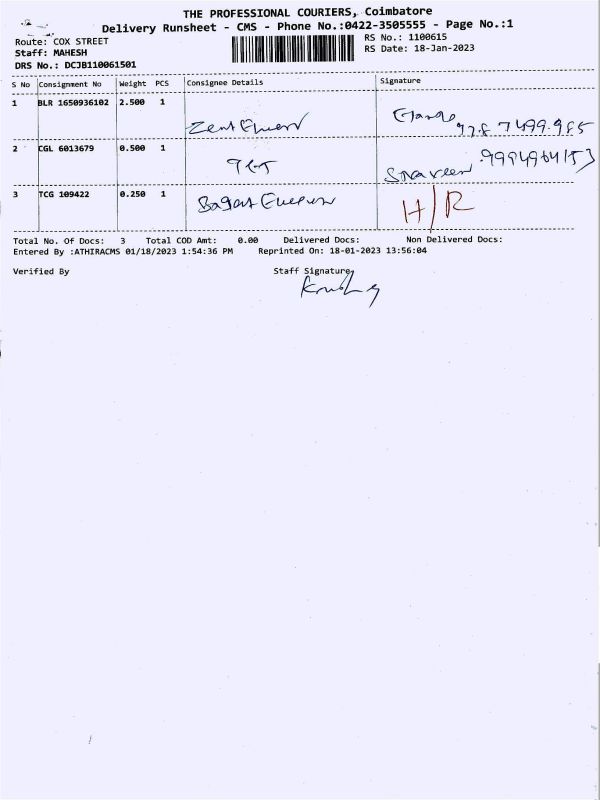 THE PROFESSIONAL COURIERS, Coimbatore
Delivery Runsheet - CMS - Phone No.:0422-3505555 - Page No.:1
Route: COX STREET RS No.: 1100615
Staff: MAHESH RS Date: 18-Jan-2023
DRS No.: DCJB110061501
S No Consignment No Weight PCS Consignee Details Signature
1 BLR 1650936102 2.500 1
2 CGL 6013679 0.500 1
3 TCG 109422 0.250 1 H/R
Total No. Of Docs: 3 Total COD Amt: 0.00 Delivered Docs: Non Delivered Docs:
Entered By :ATHIRACMS 01/18/2023 1:54:36 PM Reprinted On: 18-01-2023 13:56:04
Verified By Staff Signature